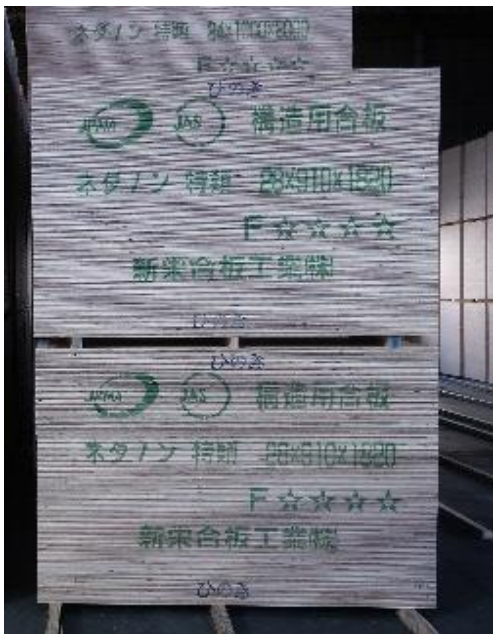 ネダノン 特類
F☆☆☆☆
ひのき
JPMA JAS 構造用合板
ネダノン 特類 28×910×1820
F☆☆☆☆
新栄合板工業㈱
ひのき
ひのき
JPMA JAS 構造用合板
ネダノン 特類 28×910×1820
F☆☆☆☆
新栄合板工業㈱
ひのき